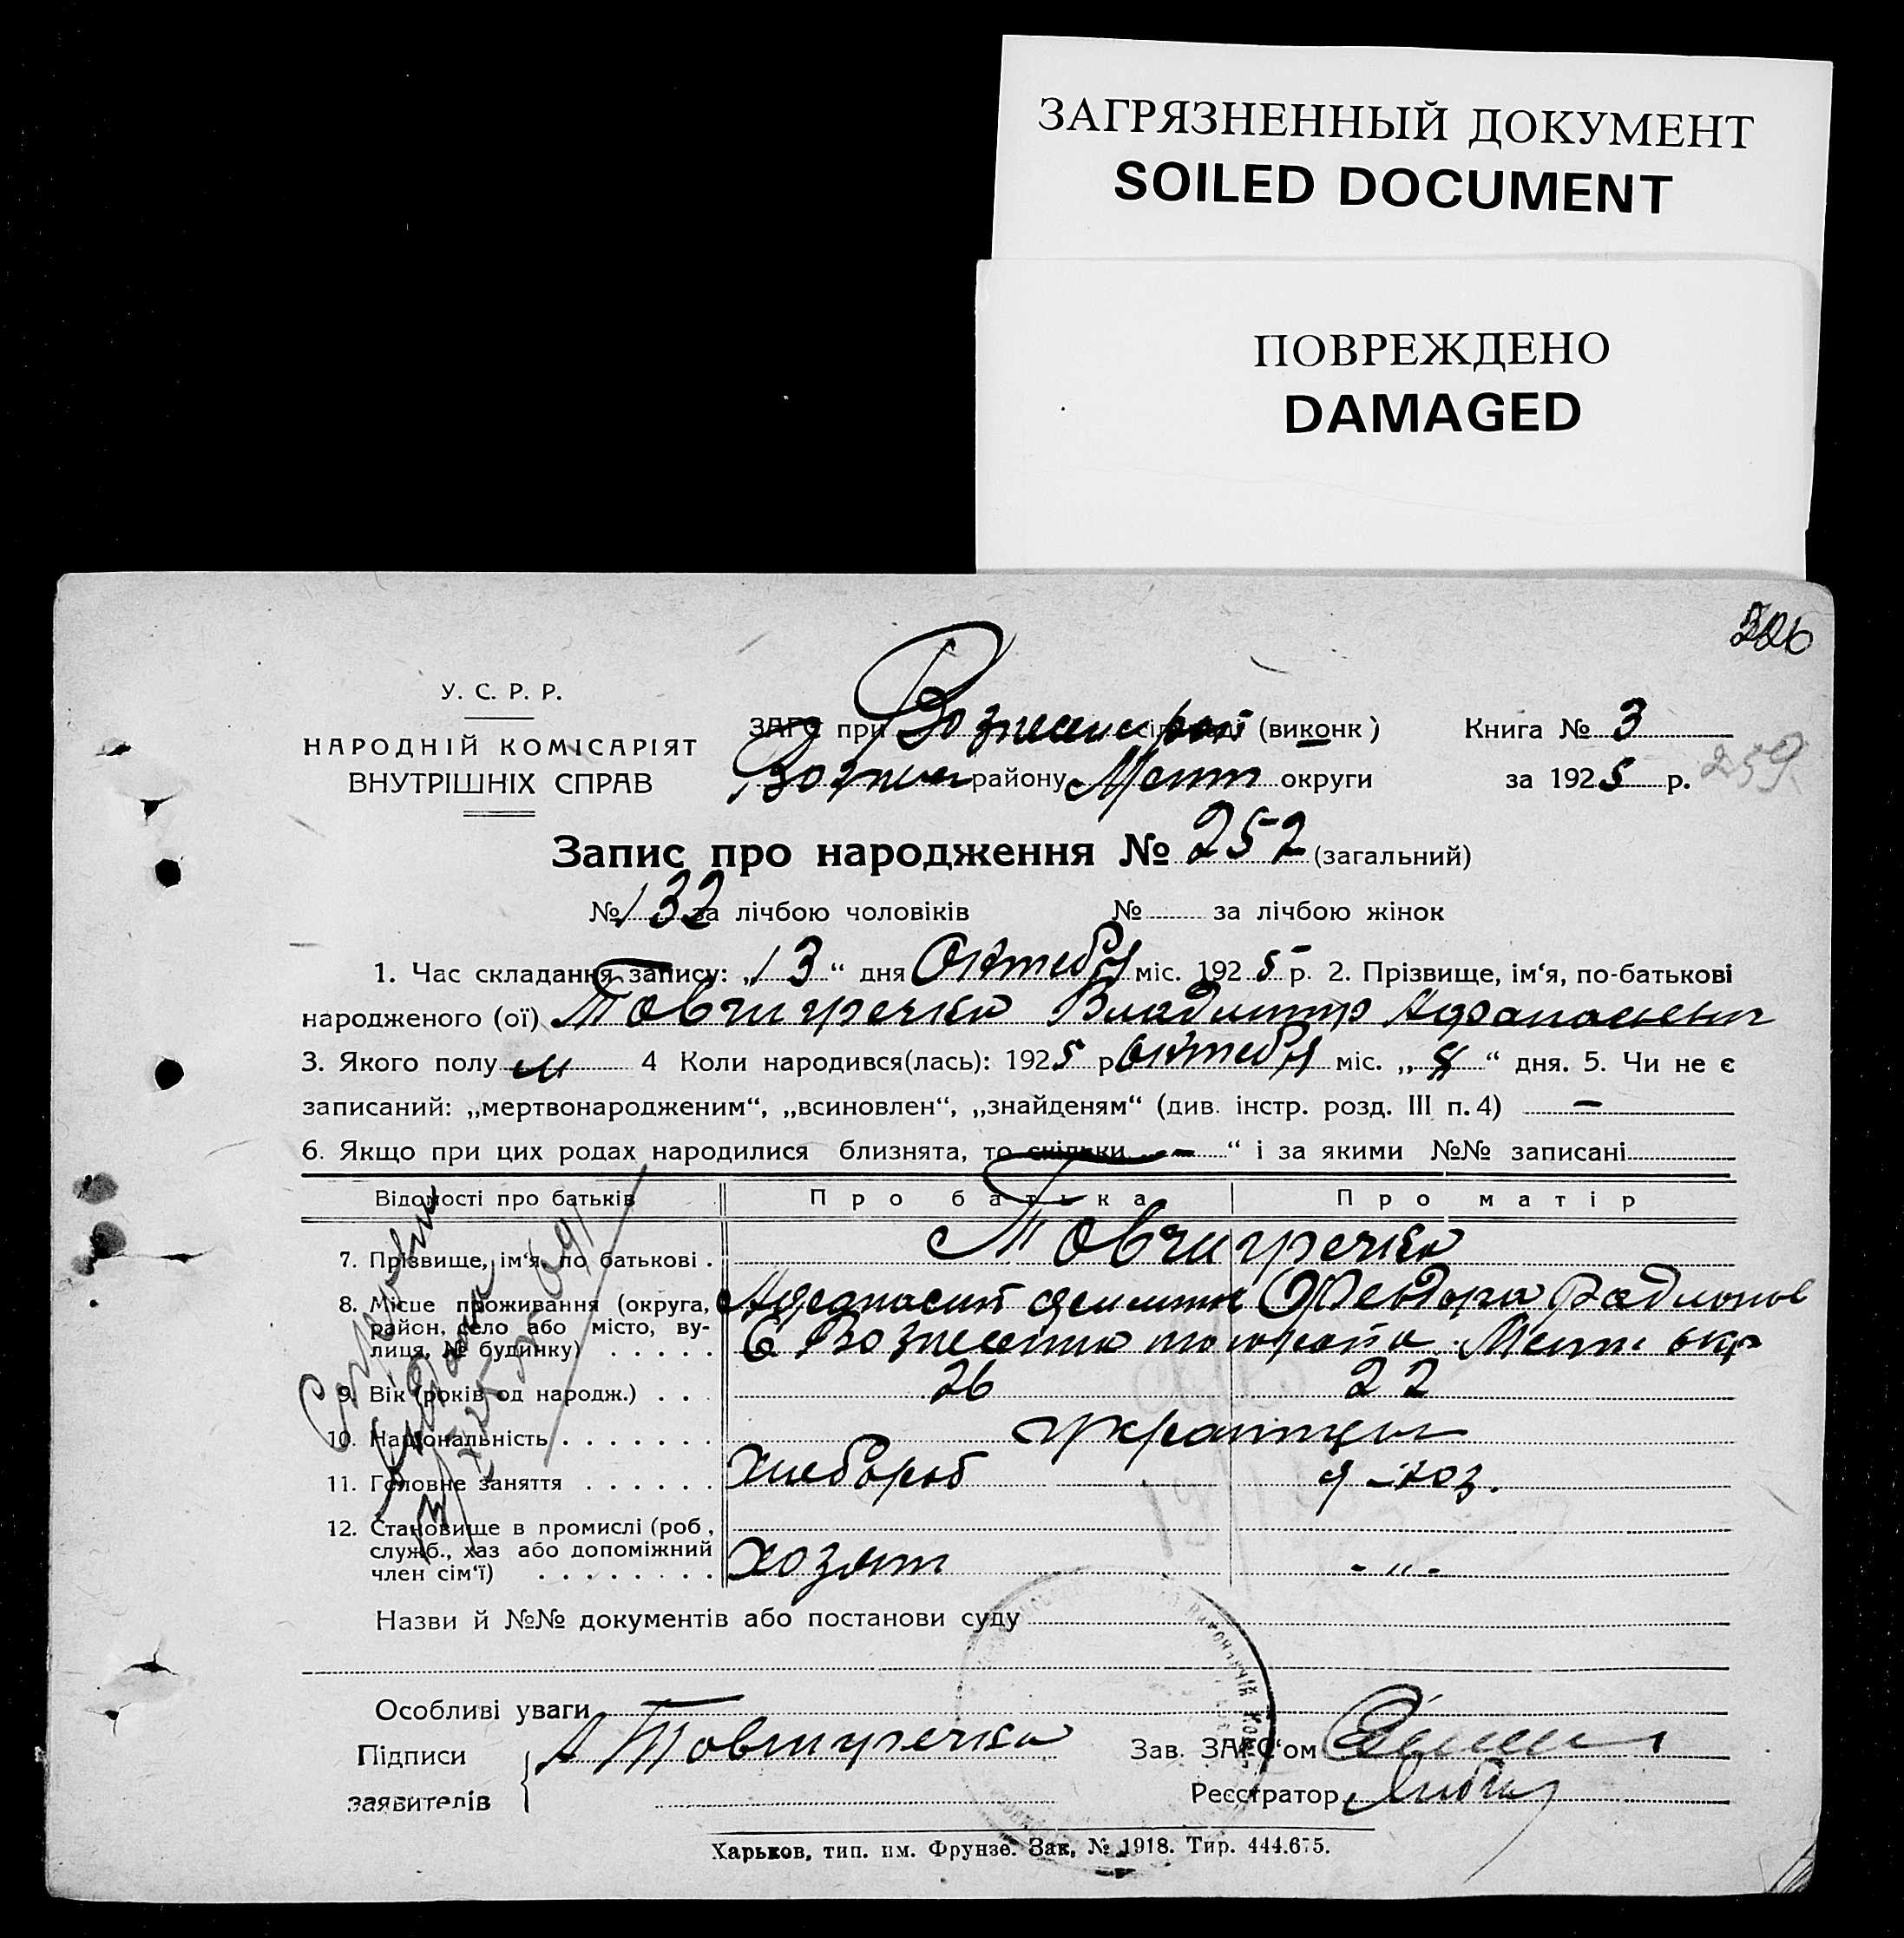 ЗАГРЯЗНЕННЫЙ ДОКУМЕНТ
SOILED DOCUMENT
ПОВРЕЖДЕНО
DAMAGED
326
У. С. Р. Р.
НАРОДНІЙ КОМІСАРІЯТ
ВНУТРІШНІХ СПРАВ
ЗАГС при (виконк)
району Мелит округи
Книга № 3
за 1925 р. 259
Запис про народження № 252 (загальний)
№ 132 за лічбою чоловіків № за лічбою жінок
1. Час складання запису: „13“ дня Октября міс. 1925 р. 2. Прізвище, ім‘я, по-батькові
народженого (ої) Товчигречка Владимир Афанасьевич
3. Якого полу м 4 Коли народився(лась): 1925 р Октября міс. „ “ дня. 5. Чи не є
записаний: „мертвонародженим“, „всиновлен“, „знайденям“ (див. інстр. розд. III п. 4) —
6. Якщо при цих родах народилися близнята, то скільки — “ і за якими №№ записані
Відомості про батьків Про батька Про матір
7. Прізвище, ім‘я, по батькові . Товчигречка
8. Місце проживання (округа, район, село або місто, вулиця, № будинку) . . . . . Афанасий Феодора
с Вознесенка Мелит. окр
9. Вік (років од народж.) . . 26 22
10. Національність . . . . . . . украинцы
11. Головне заняття . . . . . . хлебороб д-хоз.
12. Становище в промислі (роб,
служб., хаз або допоміжний
член сім‘ї) . . . . . . . . хозяин - „ -
Назви й №№ документів або постанови суду
Особливі уваги
Підписи
заявителів
А Товчигречка
Зав. ЗАГС‘ом
Реєстратор
Харьков, тип. им. Фрунзе. Зак. № 1918. Тир. 444.675.